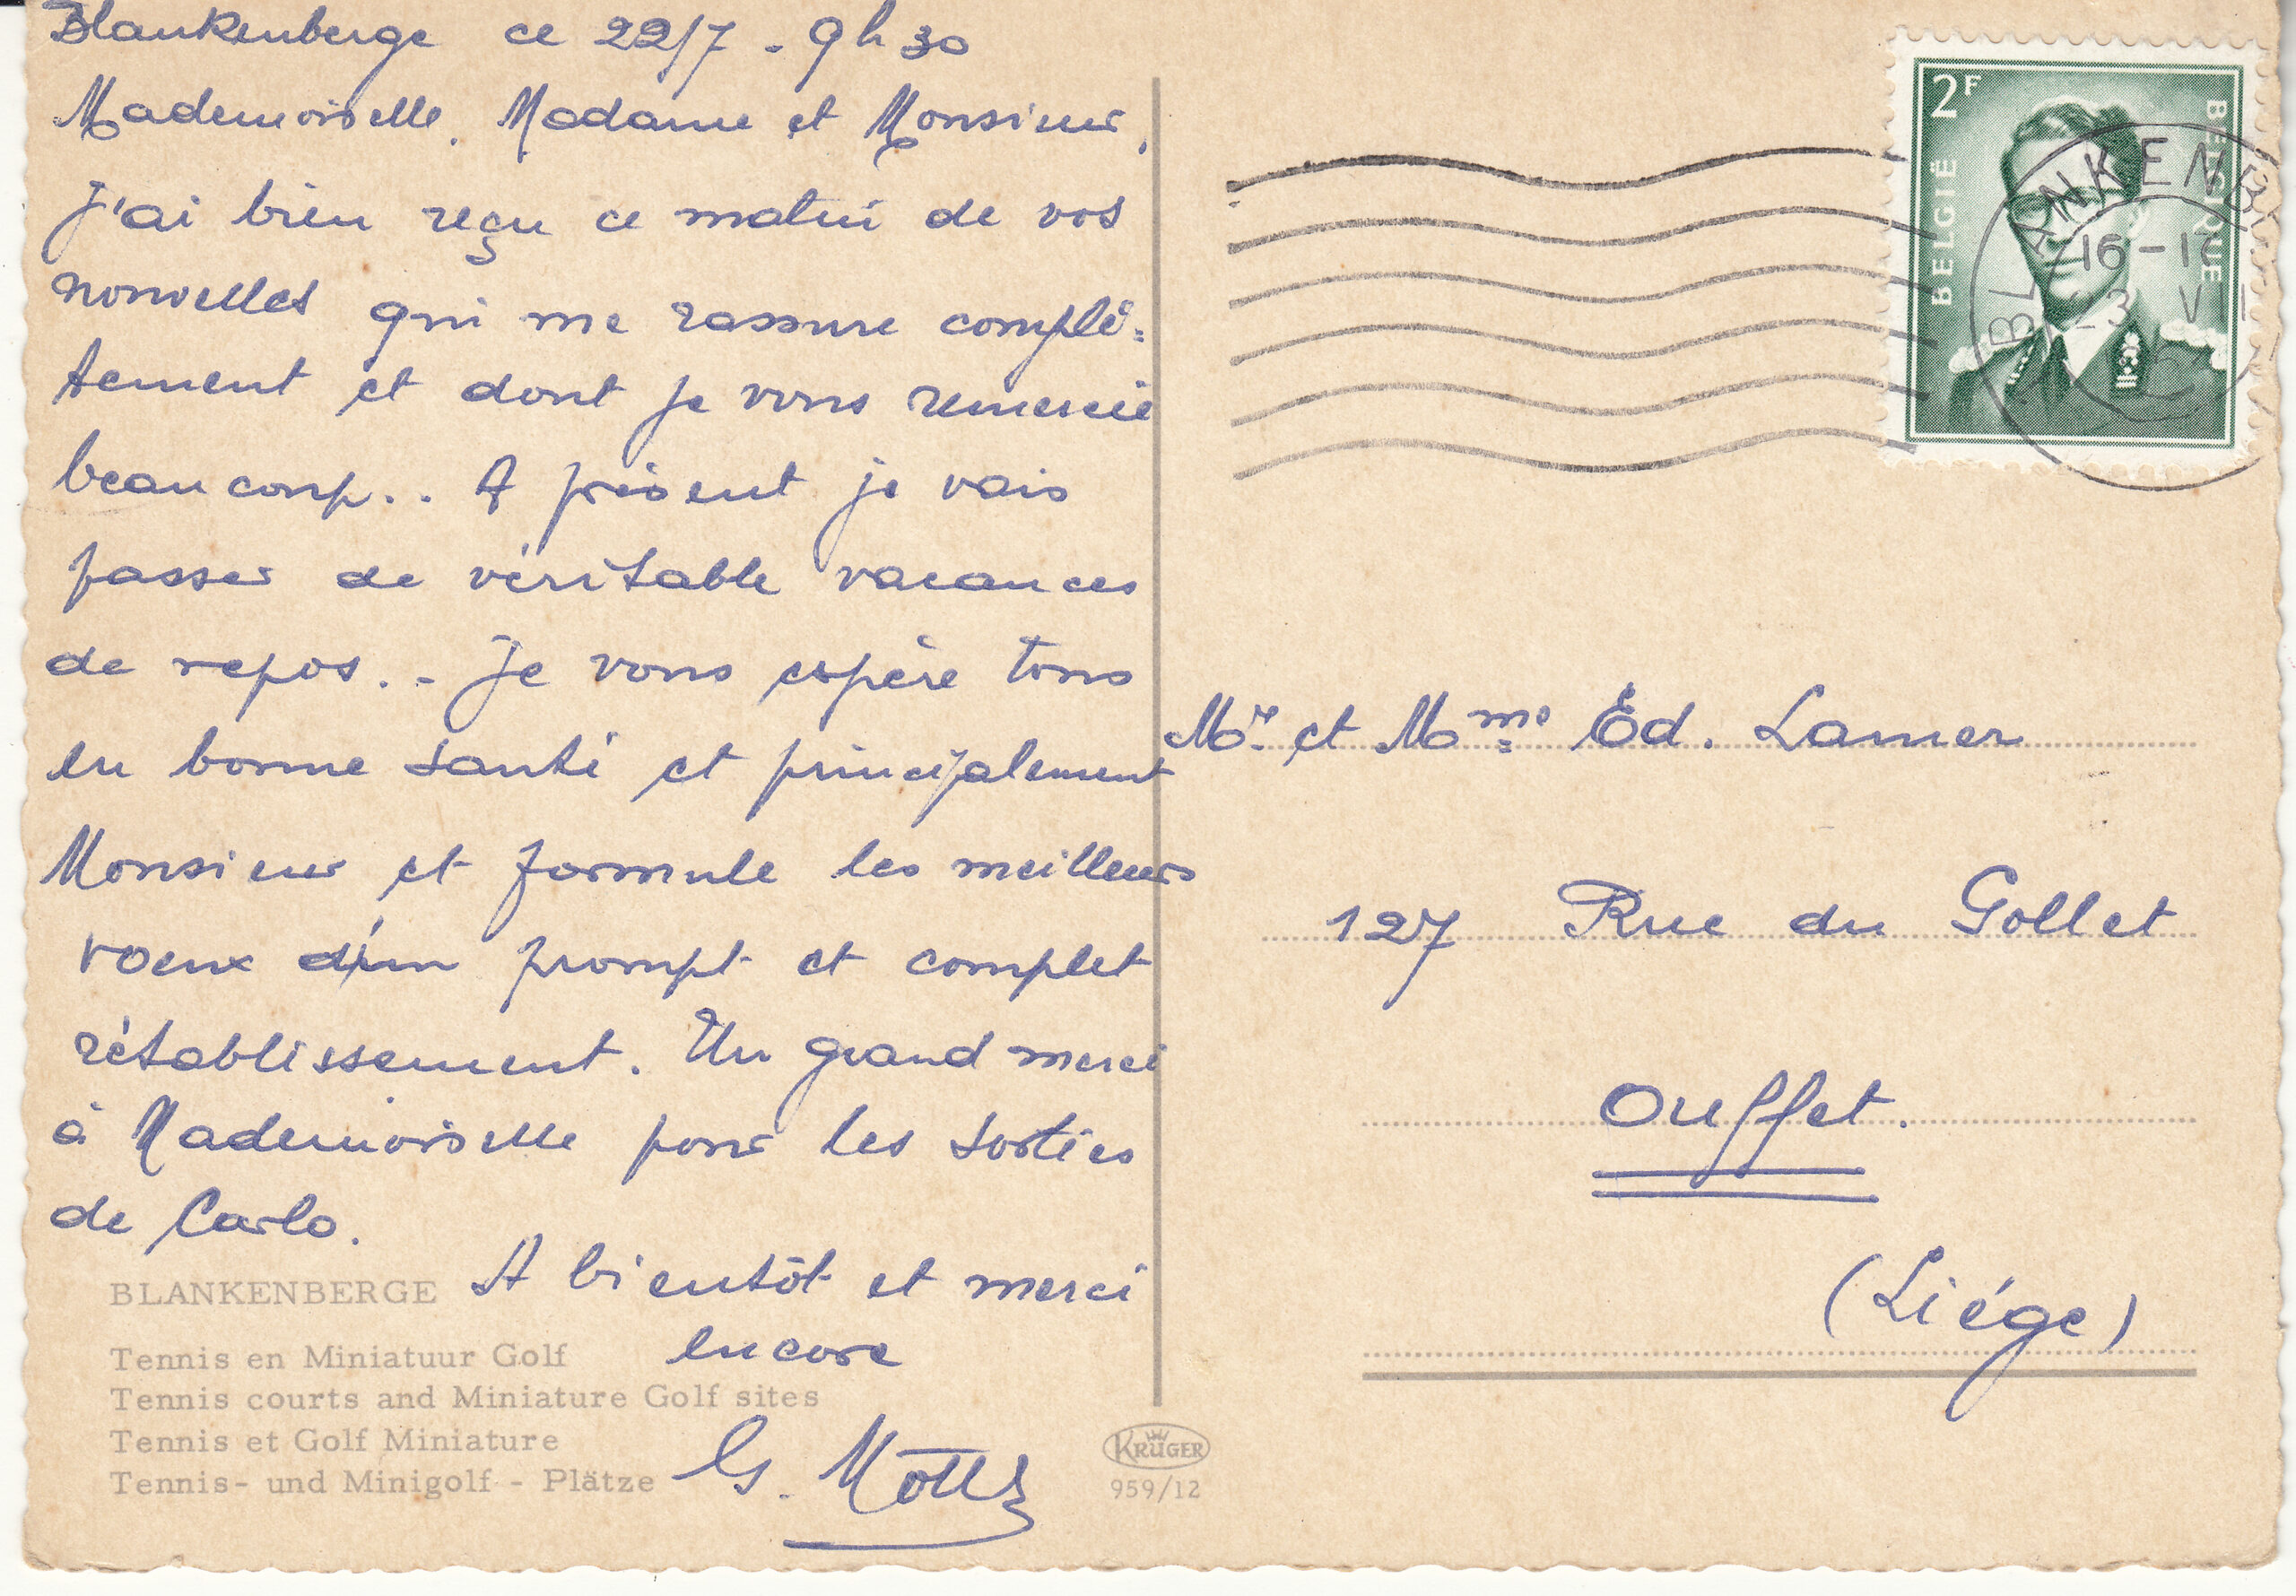 Blankenberge ce 22/7 - 9h30
Mademoiselle. Madame et Monsieur,
J'ai bien reçu ce matin de vos
nouvelles qui me rassure complè=
tement et dont je vous remercie
beaucoup.. A présent je vais
passer de véritable vacances
de repos.- Je vous espère tous
en bonne santé et principalement
Monsieur et formule les meilleurs
voeux d'un prompt et complet
rétablissement. Un grand merci
à Mademoiselle pour les sorties
de Carlo.
A bientôt et merci
encore
G.
BLANKENBERGE
Tennis en Miniatuur Golf
Tennis courts and Miniature Golf sites
Tennis et Golf Miniature
Tennis- und Minigolf - Plätze
KRÜGER
959/12
2F
BELGIË
BELGIQUE
BLANKENB
16-1
Mr et Mme Ed. Lamer
127 Rue du Gollet
Ouffet.
(Liége)